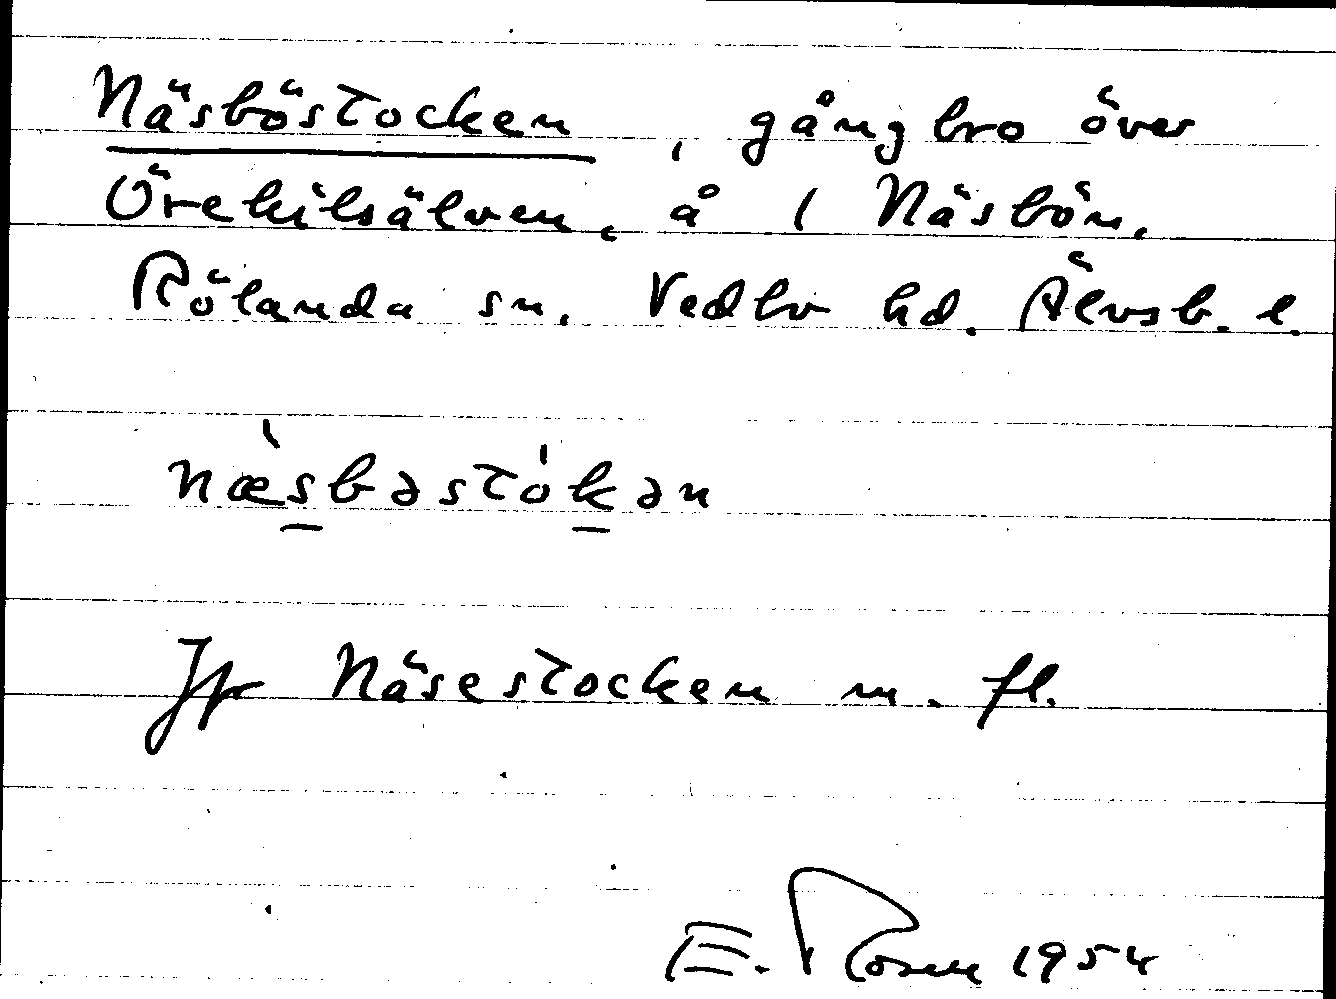 Näsböstocken, gångbro över
Örekilsälven, å 1 Näsbön,
Rölanda sn. Vedbo hd. Älvsb. l.
næ̀sbəstókən
Jfr Näsestocken m. fl.
E. Rosen 1954